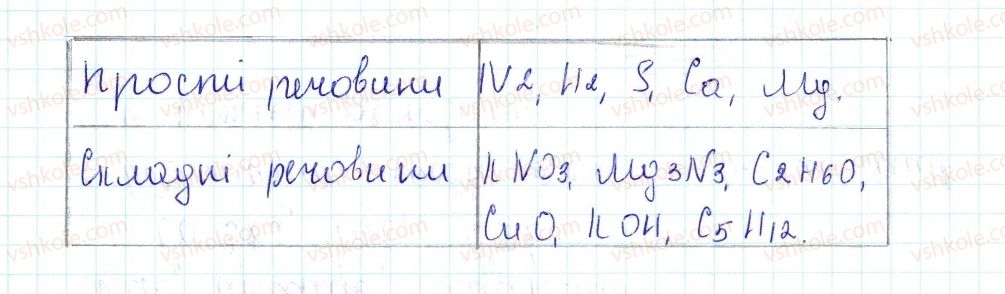 Прості речовини N2, H2, S, Ca, Mg.
Складні речовини KNO3, Mg3N3, C2H6O,
CuO, KOH, C5H12.